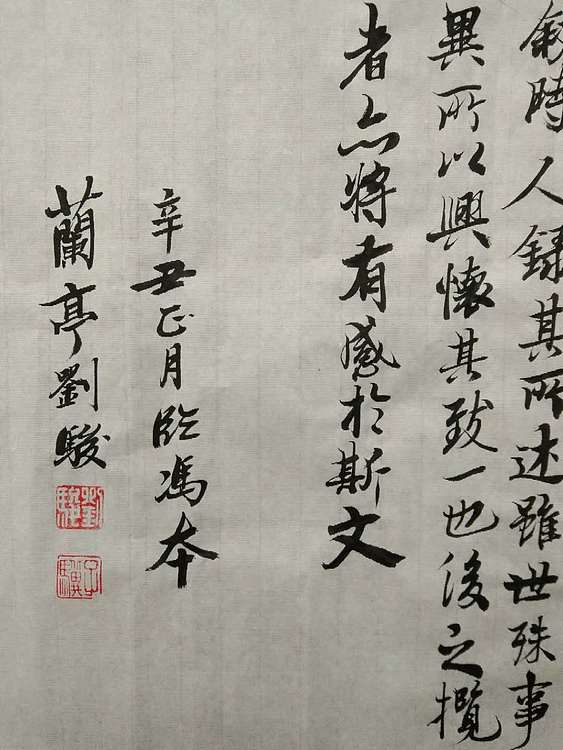 敘時人錄其所述雖世殊事
異所以興懷其致一也後之攬
者亦將有感於斯文
辛丑正月臨馮本
蘭亭劉駿
劉駿